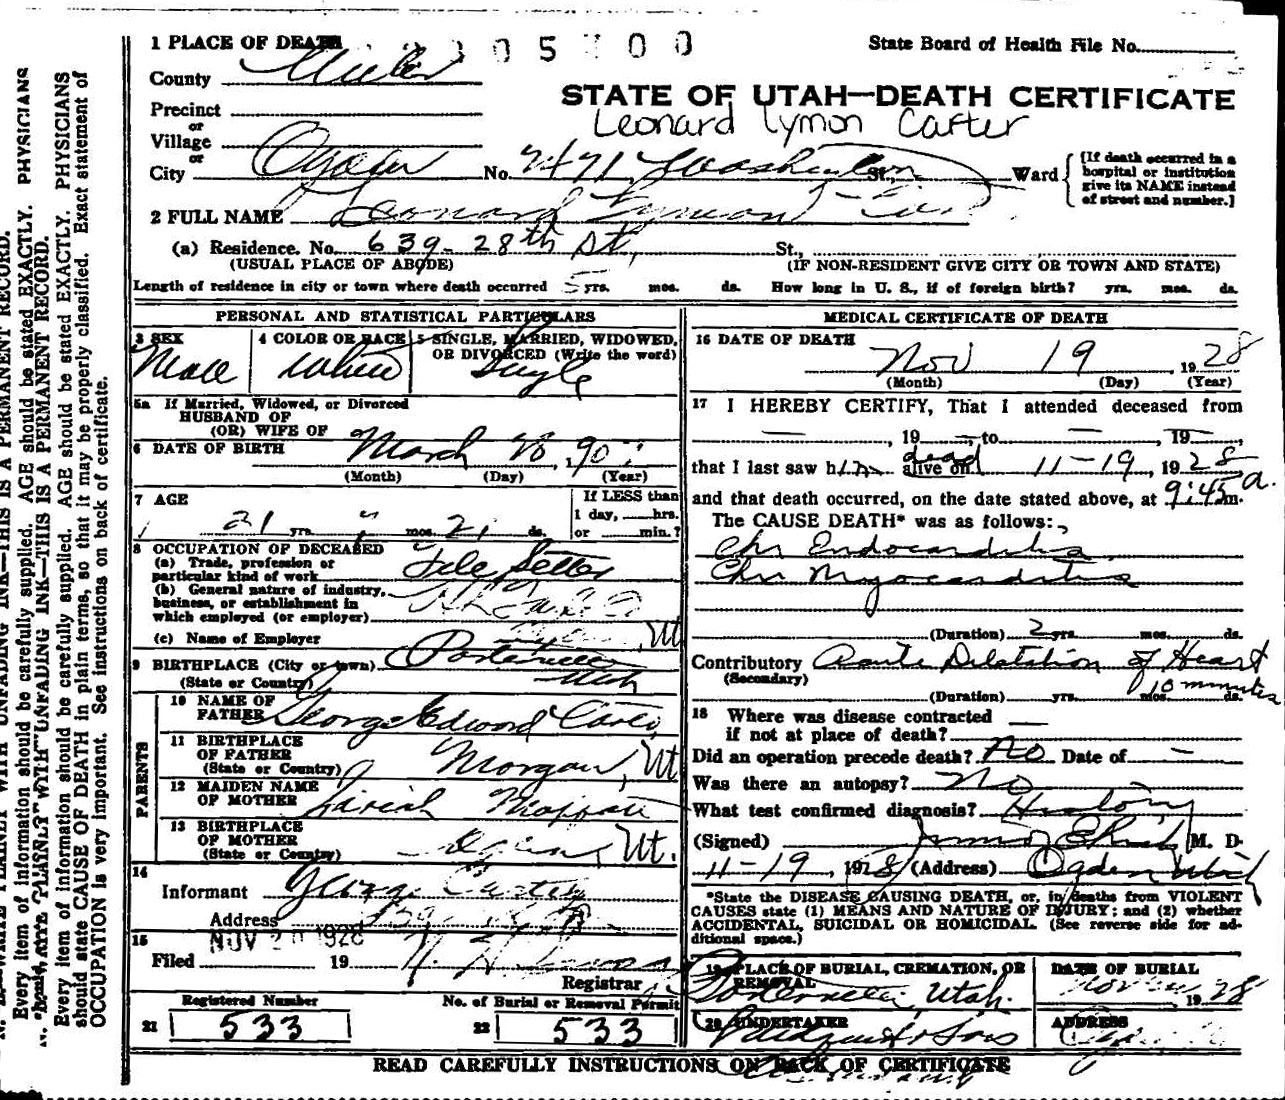 1 PLACE OF DEATH
State Board of Health File No.
County Weber
STATE OF UTAH—DEATH CERTIFICATE
Precinct
Leonard Lymon Carter
or
Village
or
City Ogden No. 2471 Washington St., Ward
[If death occurred in a hospital or institution give its NAME instead of street and number.]
2 FULL NAME Leonard Lyman
(a) Residence. No. 639-28th St, St.,
(USUAL PLACE OF ABODE) (IF NON-RESIDENT GIVE CITY OR TOWN AND STATE)
Length of residence in city or town where death occurred 5 yrs. mos. ds. How long in U. S., if of foreign birth? yrs. mos. ds.
PERSONAL AND STATISTICAL PARTICULARS
3 SEX Male
4 COLOR OR RACE White
5 SINGLE, MARRIED, WIDOWED, OR DIVORCED (Write the word) Single
5a If Married, Widowed, or Divorced
HUSBAND OF
(OR) WIFE OF
6 DATE OF BIRTH March
(Month) (Day) (Year)
7 AGE 21 yrs. mos. ds.
If LESS than
1 day, hrs.
or min.?
8 OCCUPATION OF DECEASED
(a) Trade, profession or
particular kind of work Tile Setter
(b) General nature of industry,
business, or establishment in
which employed (or employer)
(c) Name of Employer Ut
9 BIRTHPLACE (City or town) Porterville
(State or Country) Utah
PARENTS
10 NAME OF
FATHER George Edward Carter
11 BIRTHPLACE
OF FATHER
(State or Country) Morgan, Ut
12 MAIDEN NAME
OF MOTHER
13 BIRTHPLACE
OF MOTHER
(State or Country) Ogden, Ut.
14
Informant George Carter
Address
15 NOV 20 1928
Filed 19
Registrar
Registered Number
21 533
No. of Burial or Removal Permit
22 533
MEDICAL CERTIFICATE OF DEATH
16 DATE OF DEATH
Nov 19, 1928
(Month) (Day) (Year)
17 I HEREBY CERTIFY, That I attended deceased from
, 19 , to , 19 ,
that I last saw him dead alive on 11-19, 1928
and that death occurred, on the date stated above, at 9:45 a.m.
The CAUSE DEATH* was as follows:
Chr Endocarditis
Chr Myocarditis
(Duration) 2 yrs. mos. ds.
Contributory Acute Dilatation of Heart
(Secondary) 10 minutes
(Duration) yrs. mos. ds.
18 Where was disease contracted
if not at place of death?
Did an operation precede death? No Date of
Was there an autopsy? No
What test confirmed diagnosis? History
(Signed) M. D.
11-19, 1928 (Address) Ogden Utah
*State the DISEASE CAUSING DEATH, or, in deaths from VIOLENT
CAUSES state (1) MEANS AND NATURE OF INJURY; and (2) whether
ACCIDENTAL, SUICIDAL OR HOMICIDAL. (See reverse side for ad-
ditional space.)
19 PLACE OF BURIAL, CREMATION, OR
REMOVAL
Porterville, Utah.
DATE OF BURIAL
Nov 1928
20 UNDERTAKER
& Sons
ADDRESS
READ CAREFULLY INSTRUCTIONS ON BACK OF CERTIFICATE
Every item of information should be carefully supplied. AGE should be stated EXACTLY. PHYSICIANS
should state CAUSE OF DEATH in plain terms, so that it may be properly classified. Exact statement of
OCCUPATION is very important. See instructions on back of certificate.